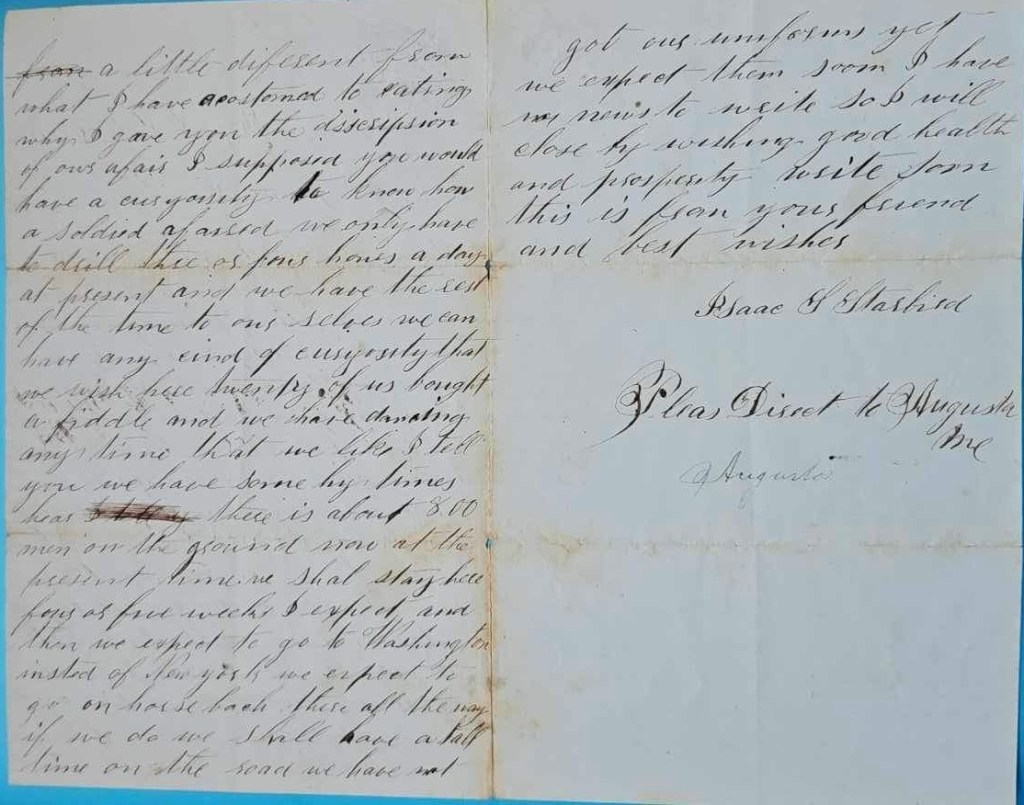 from a little diferent from
what I have acostomed to eating
why I gave you the disscripsion
of our afair I supposed you would
have a curyosity to know how
a soldied afarsed we only have
to drill thre or four hours a day
at present and we have the rest
of the time to our selves we can
have any cind of curyosity that
we wish here twenty of us bought
a fiddle and we have dancing
any time that we like I tell
you we have some hy times
hear there is about 800
men on the ground now at the
present time we shal stay here
four or five weeks I expect and
then we expect to go to Washington
insted of New york we expect to
go on horse back there all the way
if we do we shall have a tall
time on the road we have not
got our uniforms yet
we expect them soon I have
no news to write so I will
close by wishing good health
and prosperity write soon
this is from your friend
and best wishes
Isaac S Starbird
Pleas Direct to Augusta
Me
Augusta